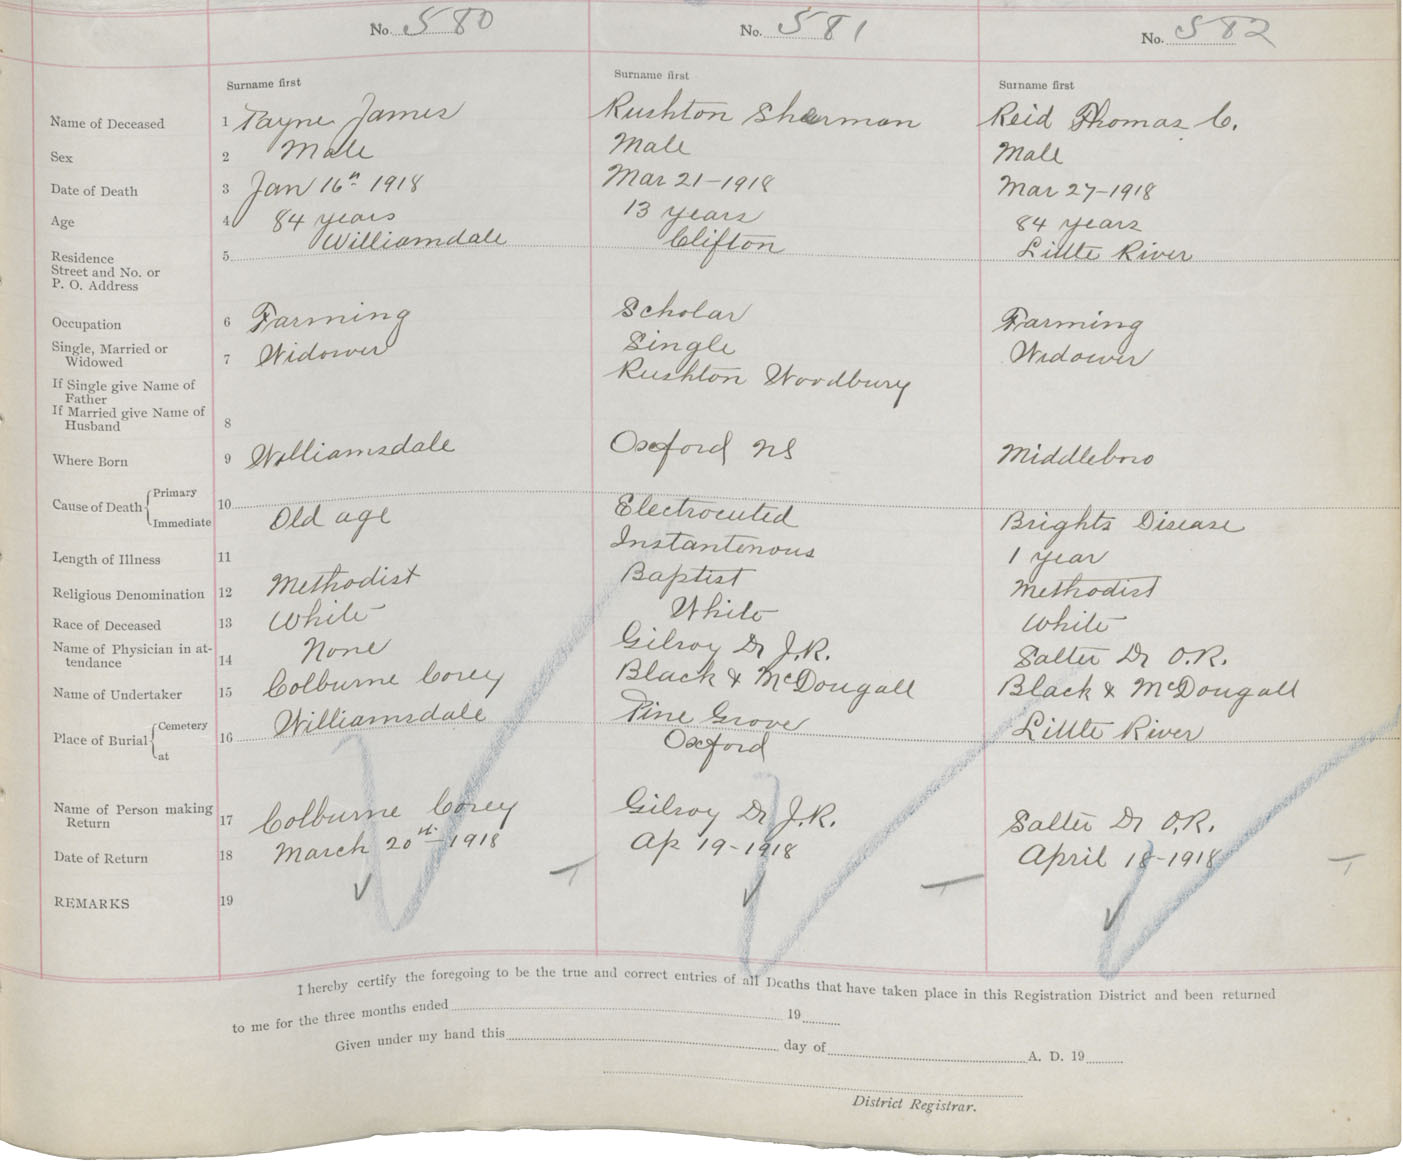 No. 580 No. 581 No. 582
Surname first Surname first Surname first
Name of Deceased 1 Tayne James Rushton Sherman Reid Thomas C.
Sex 2 Male Male Male
Date of Death 3 Jan 16th 1918 Mar 21-1918 Mar 27-1918
Age 4 84 years 13 years 84 years
Residence 5 Williamsdale Clifton Little River
Street and No. or
P. O. Address
Occupation 6 Farming Scholar Farming
Single, Married or
Widowed 7 Widower Single Widower
If Single give Name of Rushton Woodbury
Father
If Married give Name of
Husband 8
Where Born 9 Williamsdale Oxford NS Middleboro
Cause of Death Primary
Immediate 10 Old age Electrocuted Brights Disease
Length of Illness 11 Instantenous 1 year
Religious Denomination 12 Methodist Baptist Methodist
Race of Deceased 13 White White White
Name of Physician in at-
tendance 14 None Gilroy Dr J.R. Salter Dr O.R.
Name of Undertaker 15 Colburne Corey Black & McDougall Black & McDougall
Place of Burial Cemetery 16 Williamsdale Pine Grove Little River
at Oxford
Name of Person making
Return 17 Colburne Corey Gilroy Dr J.R. Salter Dr O.R.
Date of Return 18 March 20th-1918 Ap 19-1918 April 18-1918
REMARKS 19
I hereby certify the foregoing to be the true and correct entries of all Deaths that have taken place in this Registration District and been returned
to me for the three months ended 19
Given under my hand this day of A. D. 19
District Registrar.